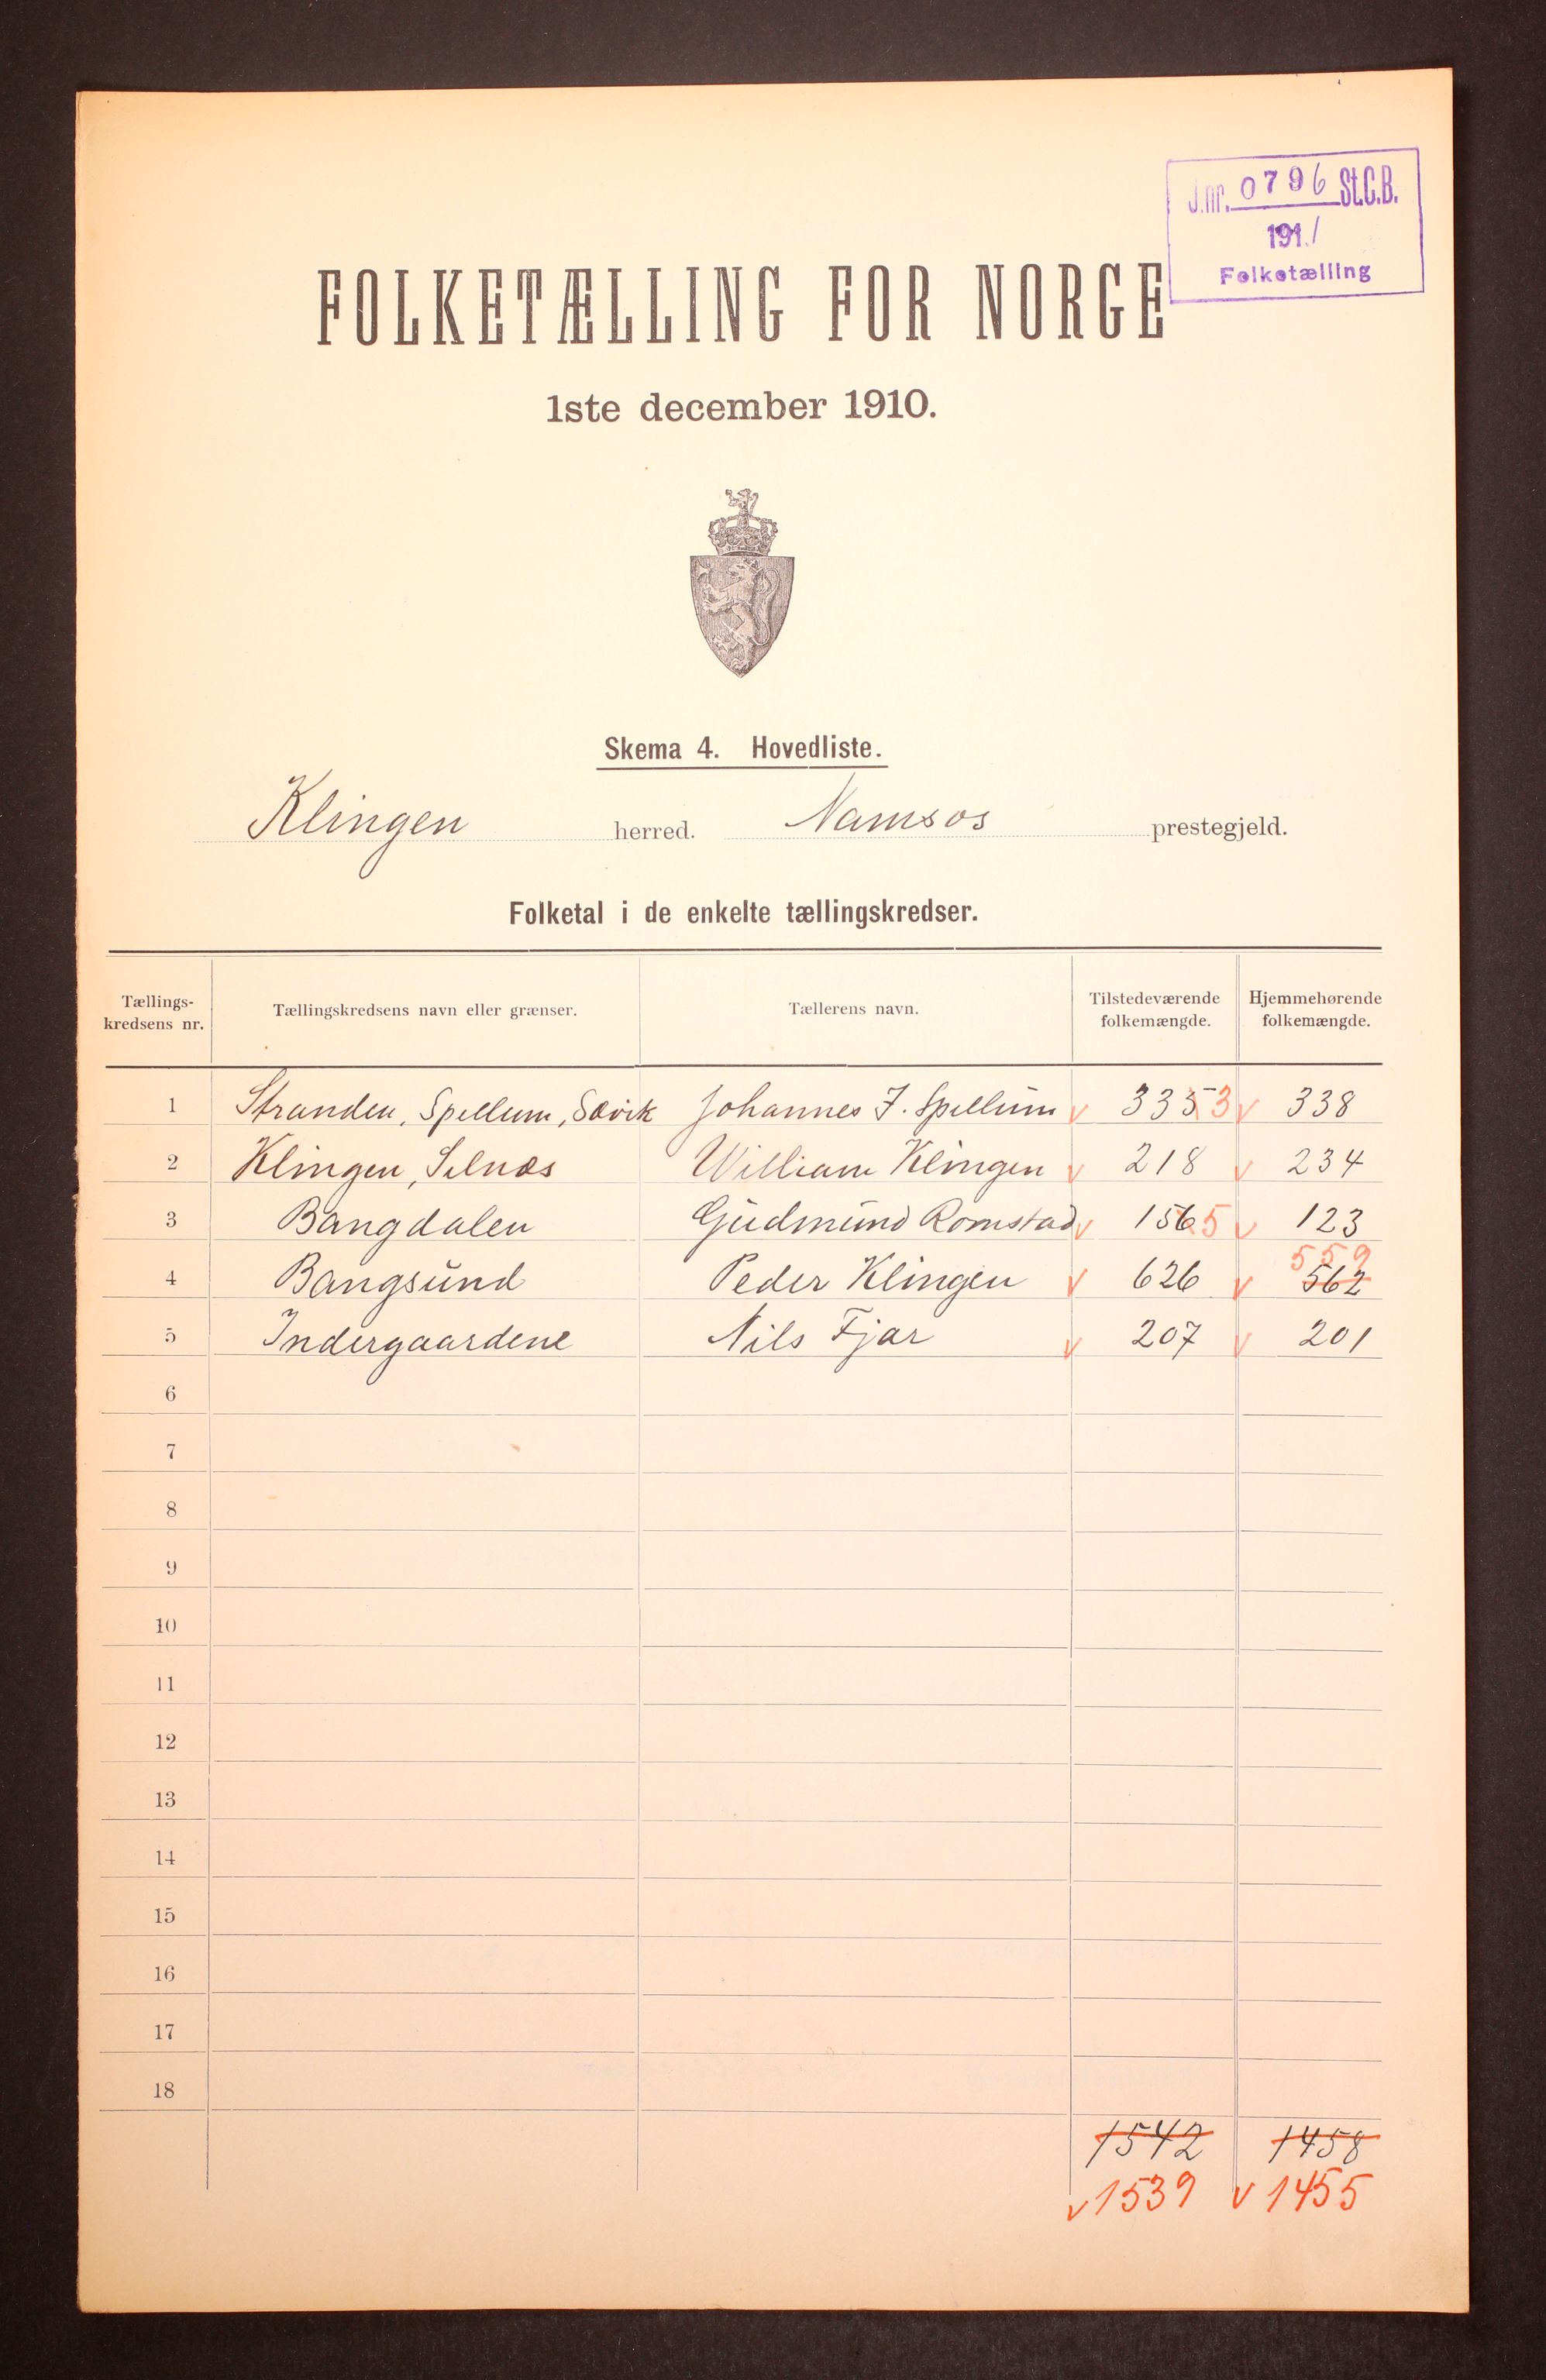 J.nr. 0796 St.C.B.
191.1
Folketælling
FOLKETÆLLING FOR NORGE
1ste december 1910.
Skema 4. Hovedliste.
Klingen herred. Namsos prestegjeld.
Folketal i de enkelte tællingskredser.
Tællings-kredsens nr. Tællingskredsens navn eller grænser. Tællerens navn. Tilstedeværende folkemængde. Hjemmehørende folkemængde.
1 Stranden, Spellum, Sævik Johannes J. Spellum v 335 3 v 338
2 Klingen, Selnæs William Klingen v 218 v 234
3 Bangdalen Gudmund Romstad v 156 5 v 123
559
4 Bangsund Peder Klingen v 626 v 562
5 Indergaardene Nils Fjær v 207 v 201
6
7
8
9
10
11
12
13
14
15
16
17
18
1542 1458
v 1539 v 1455